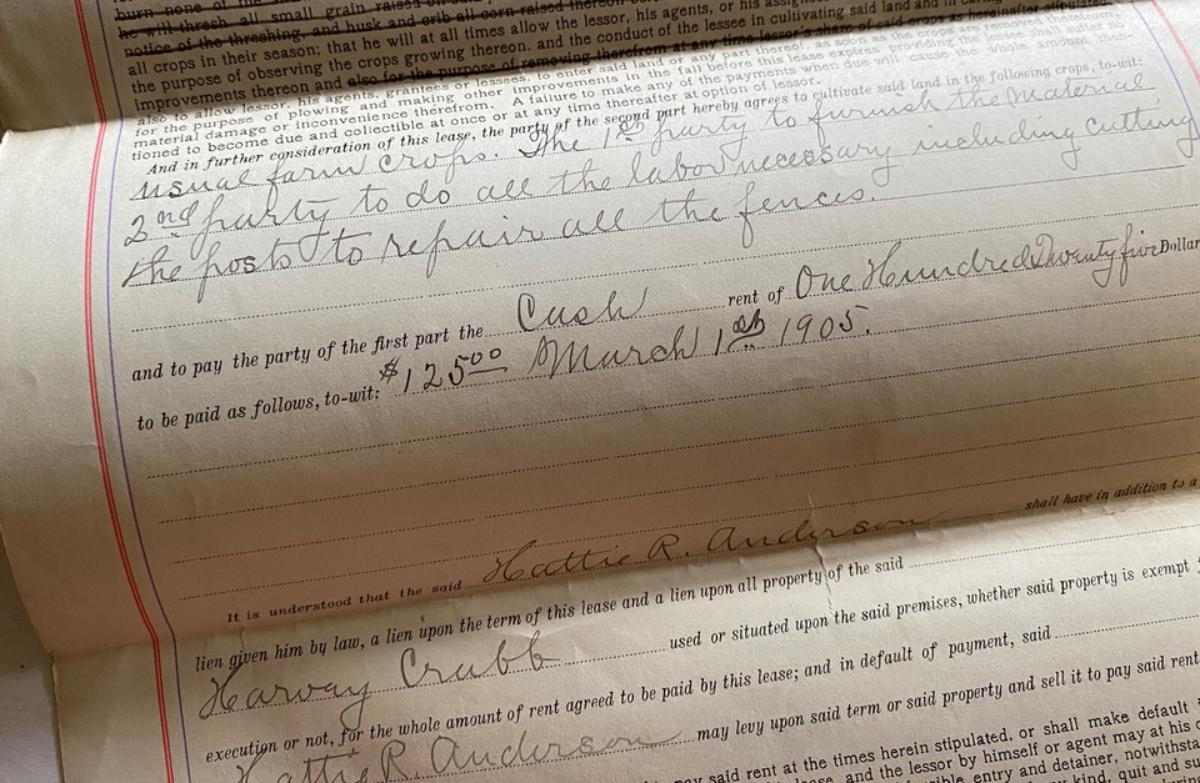 burn none of the
he will thresh all small grain raised on husk and crib all corn raised thereon
notice of the threshing, and husk and crib all corn raised thereon
all crops in their season; that he will at all times allow the lessor, his agents, or his assigns
the purpose of observing the crops growing thereon, and the conduct of the lessee in cultivating said land and in
improvements thereon and also for the purpose of removing therefrom at any time lessor's share of said crops as hereinafter stipulated
also to allow lessor, his agents, grantees or lessees, to enter said land or any part thereof, as soon as the crops are removed therefrom,
for the purpose of plowing and making other improvements in the fall before this lease expires providing the lessee shall suffer no
material damage or inconvenience therefrom. A failure to make any of the payments when due will cause the whole amount men-
tioned to become due and collectible at once or at any time thereafter at option of lessor.
And in further consideration of this lease, the party of the second part hereby agrees to cultivate said land in the following crops, to-wit:
usual farm crops. The 1st party to furnish the material
2nd party to do all the labor necessary including cutting
the posts to repair all the fences.
and to pay the party of the first part the Cash rent of One Hundred Twenty five Dollar
to be paid as follows, to-wit: $125.00 March 1st 1905.
It is understood that the said Hattie R. Anderson shall have in addition to a
lien given him by law, a lien upon the term of this lease and a lien upon all property of the said
Harvay Crabb used or situated upon the said premises, whether said property is exempt
execution or not, for the whole amount of rent agreed to be paid by this lease; and in default of payment, said
Hattie R. Anderson may levy upon said term or said property and sell it to pay said rent
pay said rent at the times herein stipulated, or shall make default
and the lessor by himself or agent may at his
entry and detainer, notwithsta
kind, quit and su